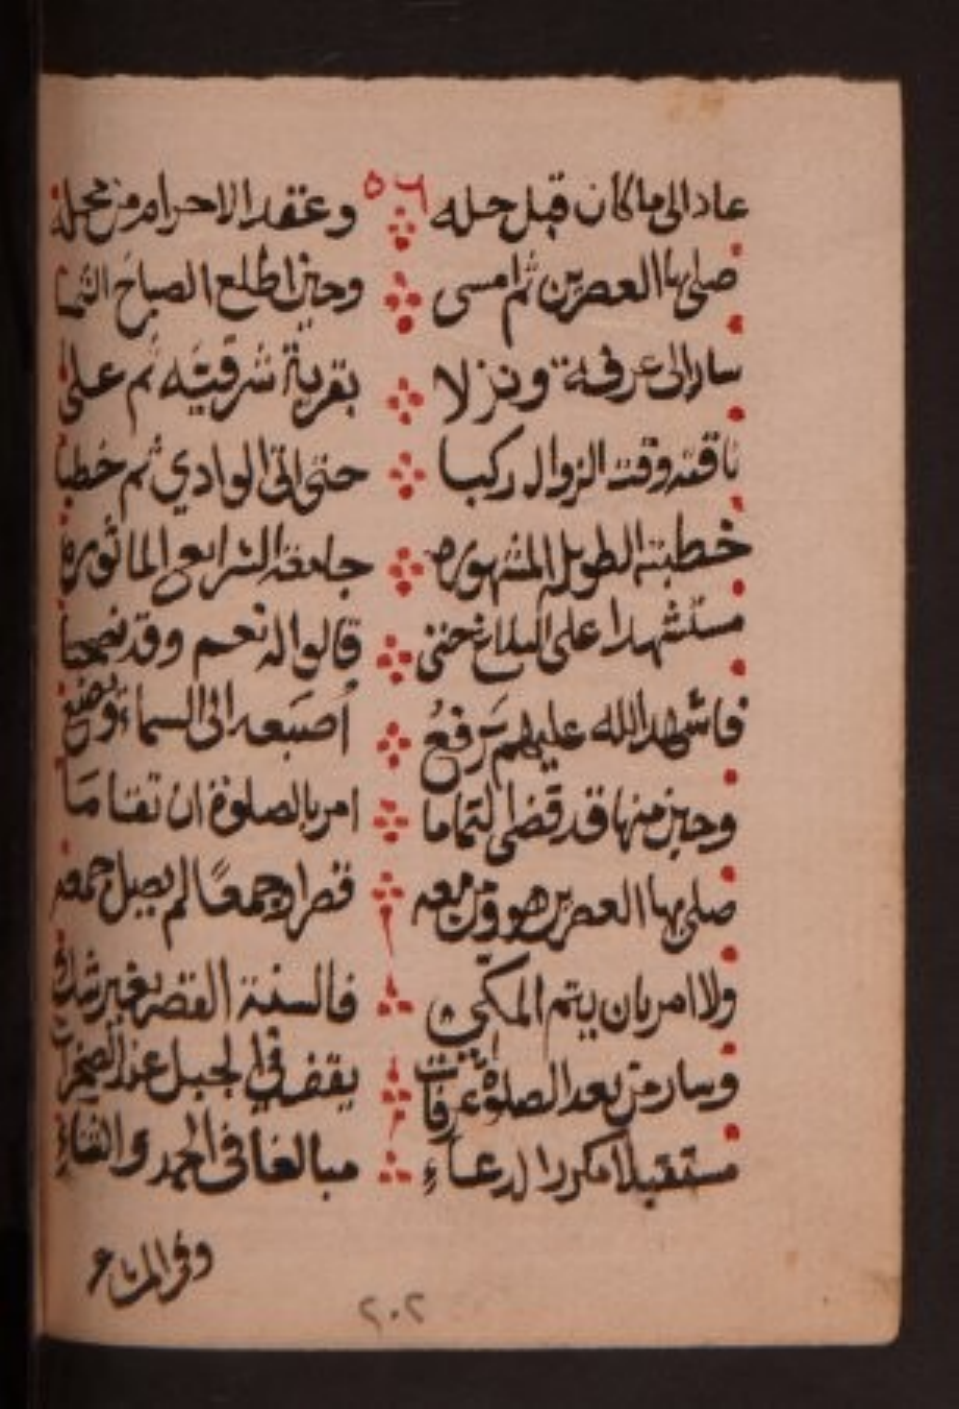 عاد الى ما كان قبل حله ٥٦ وعقد الاحرام من محله
صلى بها العصرين ثم امسى وحين اطلع الصباح الشمسا
سار الى عرفة ونزلا بقرية شرقيته ثم على
ناقته وقت الزوال ركبا حتى اتى الوادي ثم خطبا
خطبته الطويل المشهوره جامعة الشرايع الماثوره
مستشهدا على البلاغ حتى قالوا له نعم وقد
فاشهد الله عليهم رفعُ اُصبَعه الى السماء ويضع
وحين منها قد قضى التماما امر بالصلوة ان تقاما
صلى بها العصرين هو ومن معه قصرا وجمعًا لم يصل جمعه
ولا امر بان يتم المكي فالسنة القصر بغير شك
وسار من بعد الصلوة عرفات يقف في الجبل عند الصخرات
مستقبلا مكررا لدعاءِ مبالغا في الحمد والثناءِ
وفي
٢٠٢